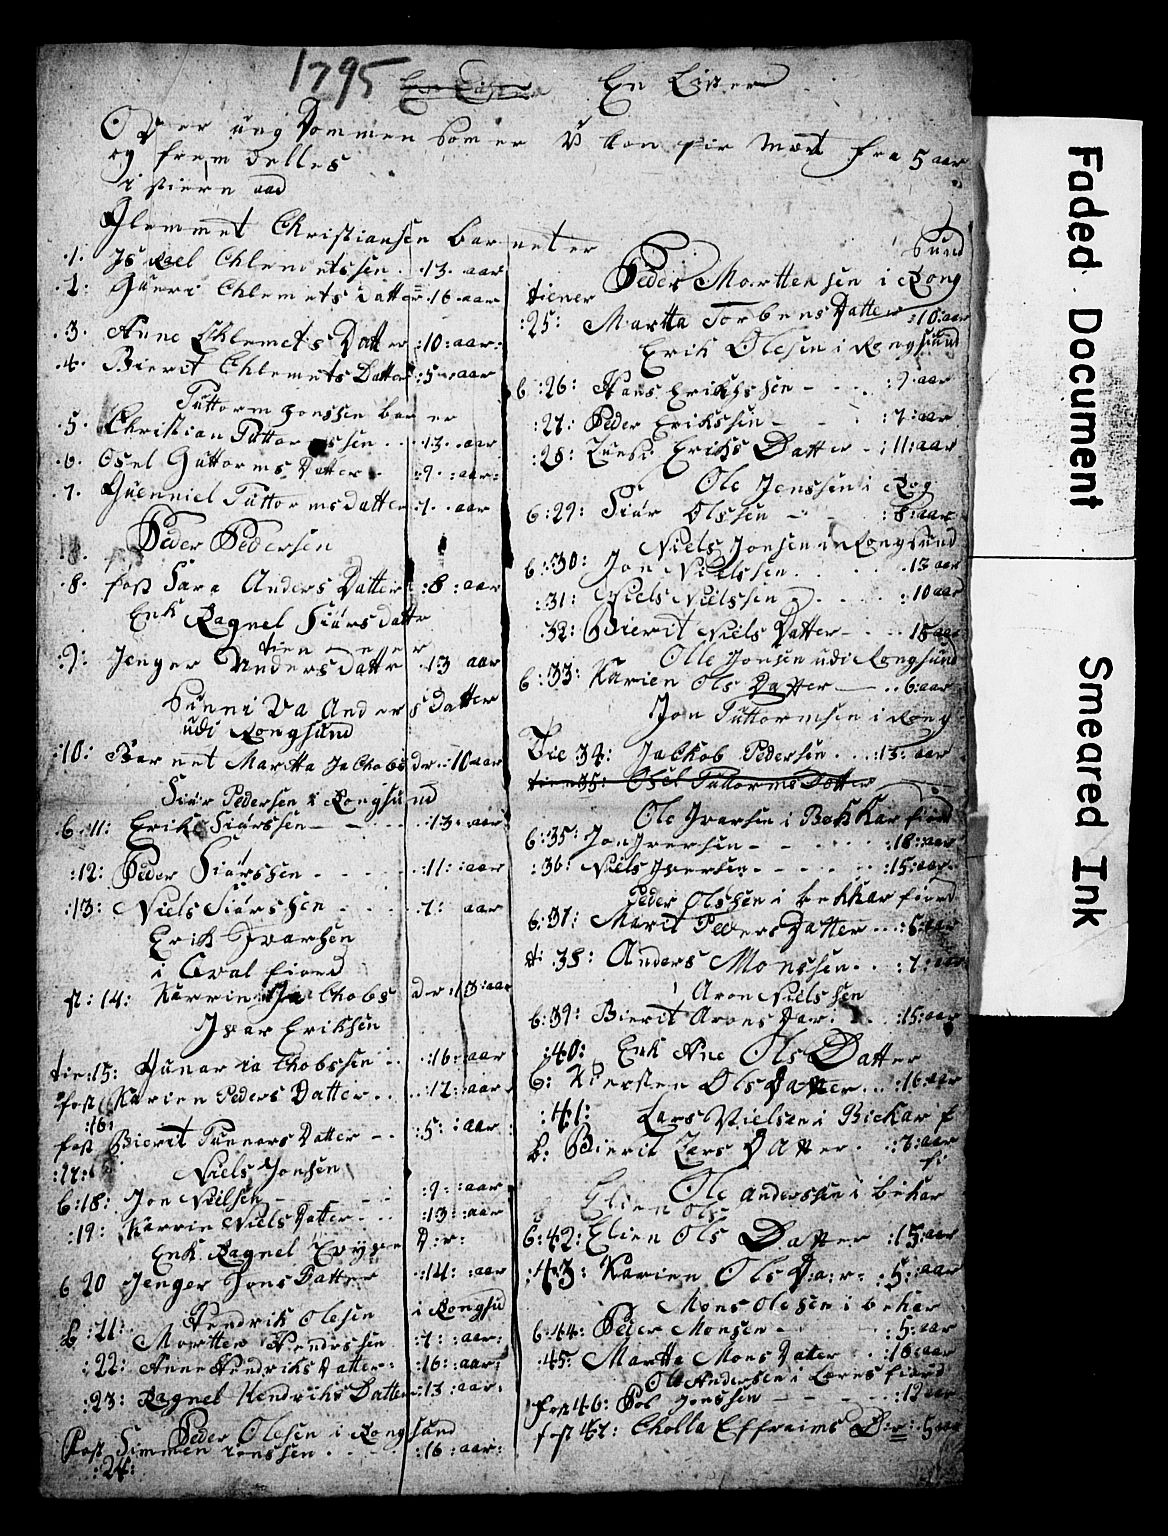 1795 En Lister
Over ung Dommen som er U kon fir mert fra 5 aar
og frem delles
i piere aad
Glemmet Christiansen bar net er
.1. Israel Chlemetssen . 13. aar
.2: Gueri Chlemets datter 16 aar
.3. Anne Chlemets Datter :10: aar:
.4. Bierit Chlemets Datter :5 aar
Guttorm Jonssen bar er
.5. Christian Guttormssen . 13. aar
.6. Osel Guttorms Datter . 9. aar:
.7. Guenniel Guttormsdatter :1. aar
Peder Pedersen
.8. fost Sara Anders Datter :8: aar
Enk Ragnel Siursdatter
tien
:9: Jenger Andersdattr . 13 aar
Sunniva Andersdatter
udi Rongsund
:10: Bar net Martta Jachobs dr. 10 aar
Siur Pedersen i Rongsund
b :11: Erik Siurssen . 13. aar
:12: Peder Siurssen . 11: aar
:13: Niels Siurssen . 7: aar
Erik Ivarsen
i Qval fiord
:14: Karrin Jachobs dr: 13: aar
Ivar Eriksen
tie:15: Gunar ia chobssen . 16: aar
fost Karien Peders Datter . 12: aar
:16:
fost Bierit Gunners Datter :5: aar
:17:
Niels Jonsen
b:18: Jon Nielsen :9: aar
:19: Karrin Niels Datter :13: aar
Enk Ragnel D:r:
b 20 Jenger Jons Datter :14: aar
Hendrik Olesen i Rongsu
b :21: Mortten Hendrssen :7: aar:
:22: Anne Hendriks Datter: :16: aar:
:23: Ragnel Hendriks Datter :13: aar:
Peder Olesen i Rongsund
fost Simmen Jonssen . :16: aar:
:24:
Peder Morttensen i Rong
sund
tiener
:25: Martta Torbens Datter :10: aar
Erik Olesen i Rongsund
b :26: Hans Erikssen :9 aar
:27: Peder Erikssen :7: aar
:28: Eriks Datter : 11: aar
Ole Jenssen i Rog
b :29: Siur Olssen :8: aar
Niels Jonsen i Rongsund
b :30: Jon Nielssen . 13 aar
:31: Niels Nielssen . :10 aar
:32: Bierit Niels Datter . 18 aar
Olle Jonsen udi Rongsund
b :33: Karien Ols Datter . 6: aar
Jon Guttormsen i Rong
Tie 34: Jachob Pedersen . 13. aar
tien 35: Osel Guttorms Datter
Ole Ivarsen i Bekkar fiord
b:35: Jon Iversen :18: aar
:36: Niels Iversen :15: aar
Peder Olssen i bekkar fiord
b:37: Marit Peders Datter . :6: aar
ti: 38: Anders Monssen . :7: aar
Aron Nielssen
b:39: Bierit Arons Dar: :15: aar
:40: Enk Ane Ols Datter
b: Kiersten Ols Datter . :16 aar
:41: Lars Nielsen i Bickar f
b: Bierit Lars Datter . :7: aar
fi
Ole Anderssen i bekar
Elien Ols
b:42: Elien Ols Datter :15: aar
:43: Karien Ols Da:r: :5: aar
Mons Olesen i bekar
b:44: Peder Monsen :5: aar
:45: Martte Mons Dater . :16 aar
Ole Andersen i Lærens fiord
fost 46: Jonssen :12 aar
fost 47: Cholla Effraims D:r: :5 aar
Faded Document
Smeared Ink